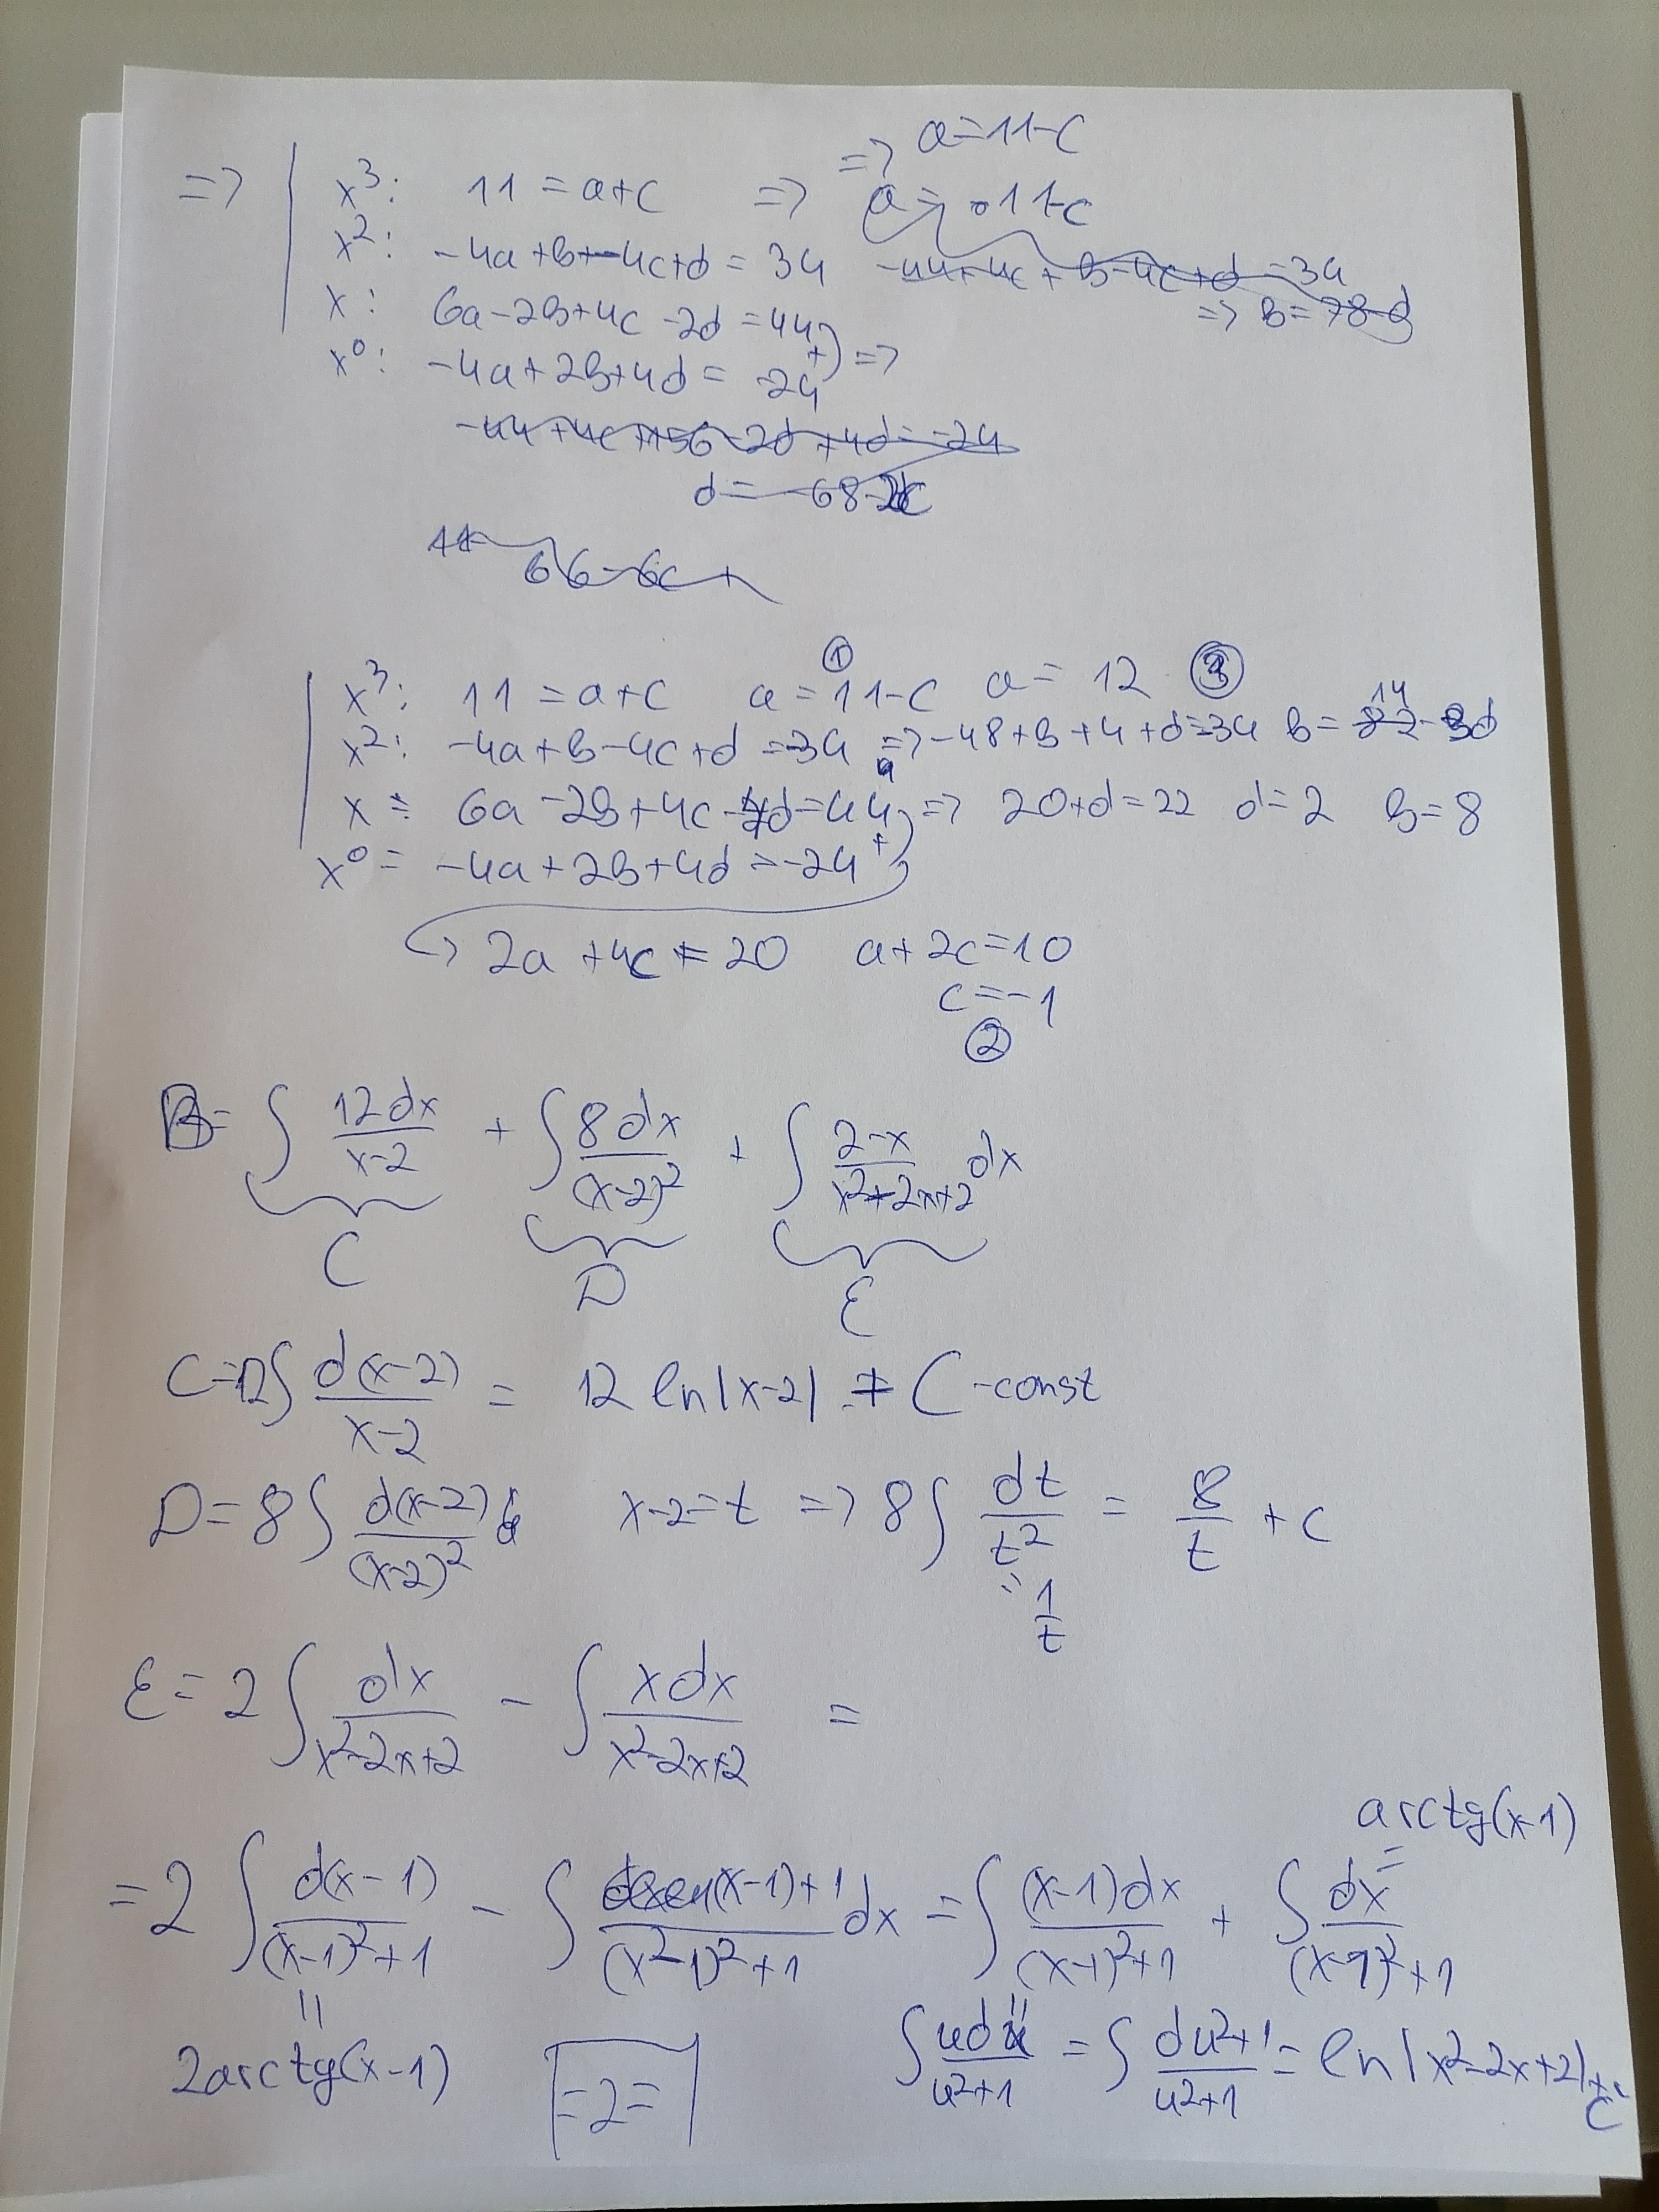 => a=11-c
=> | x³: 11 = a+c => a= 11-c
x²: -4a+b+-4c+d = 34 -44+4c+b-4c+d=34
x: 6a-2b+4c-2d=44 => b=78-d
x⁰: -4a+2b+4d= -24 +) =>
-44+4c+156-2d+4d=-24
d= -68-2c
11-
66-6c+
①
x³: 11=a+c a=11-c a= 12 ③
x²: -4a+b-4c+d=-34 => -48+b+4+d=-34 b= 14
x= 6a-2b+4c-4d=44 => 20+d=22 d=2 b=8
x⁰= -4a+2b+4d=-24 +)
↪ 2a+4c=20 a+2c=10
c=-1
②
B= ∫ 12dx/(x-2) + ∫ 8dx/(x-2)² + ∫ (2-x)/(x²-2x+2) dx
C D E
C=12∫ d(x-2)/(x-2) = 12 ln|x-2| + C -const
D=8∫ d(x-2)/(x-2)² x-2=t => 8∫ dt/t² = 8/t + c
= 1/t
E=2∫ dx/(x²-2x+2) - ∫ xdx/(x²-2x+2) =
arctg(x-1)
=
=2∫ d(x-1)/((x-1)²+1) - ∫ (x-1)+1/((x²-1)²+1) dx = ∫ (x-1)dx/((x-1)²+1) + ∫ dx/((x-1)²+1)
= =
2arctg(x-1) =2= ∫ udu/(u²+1) = ∫ du²+1/(u²+1) = ln|x²-2x+2|+c